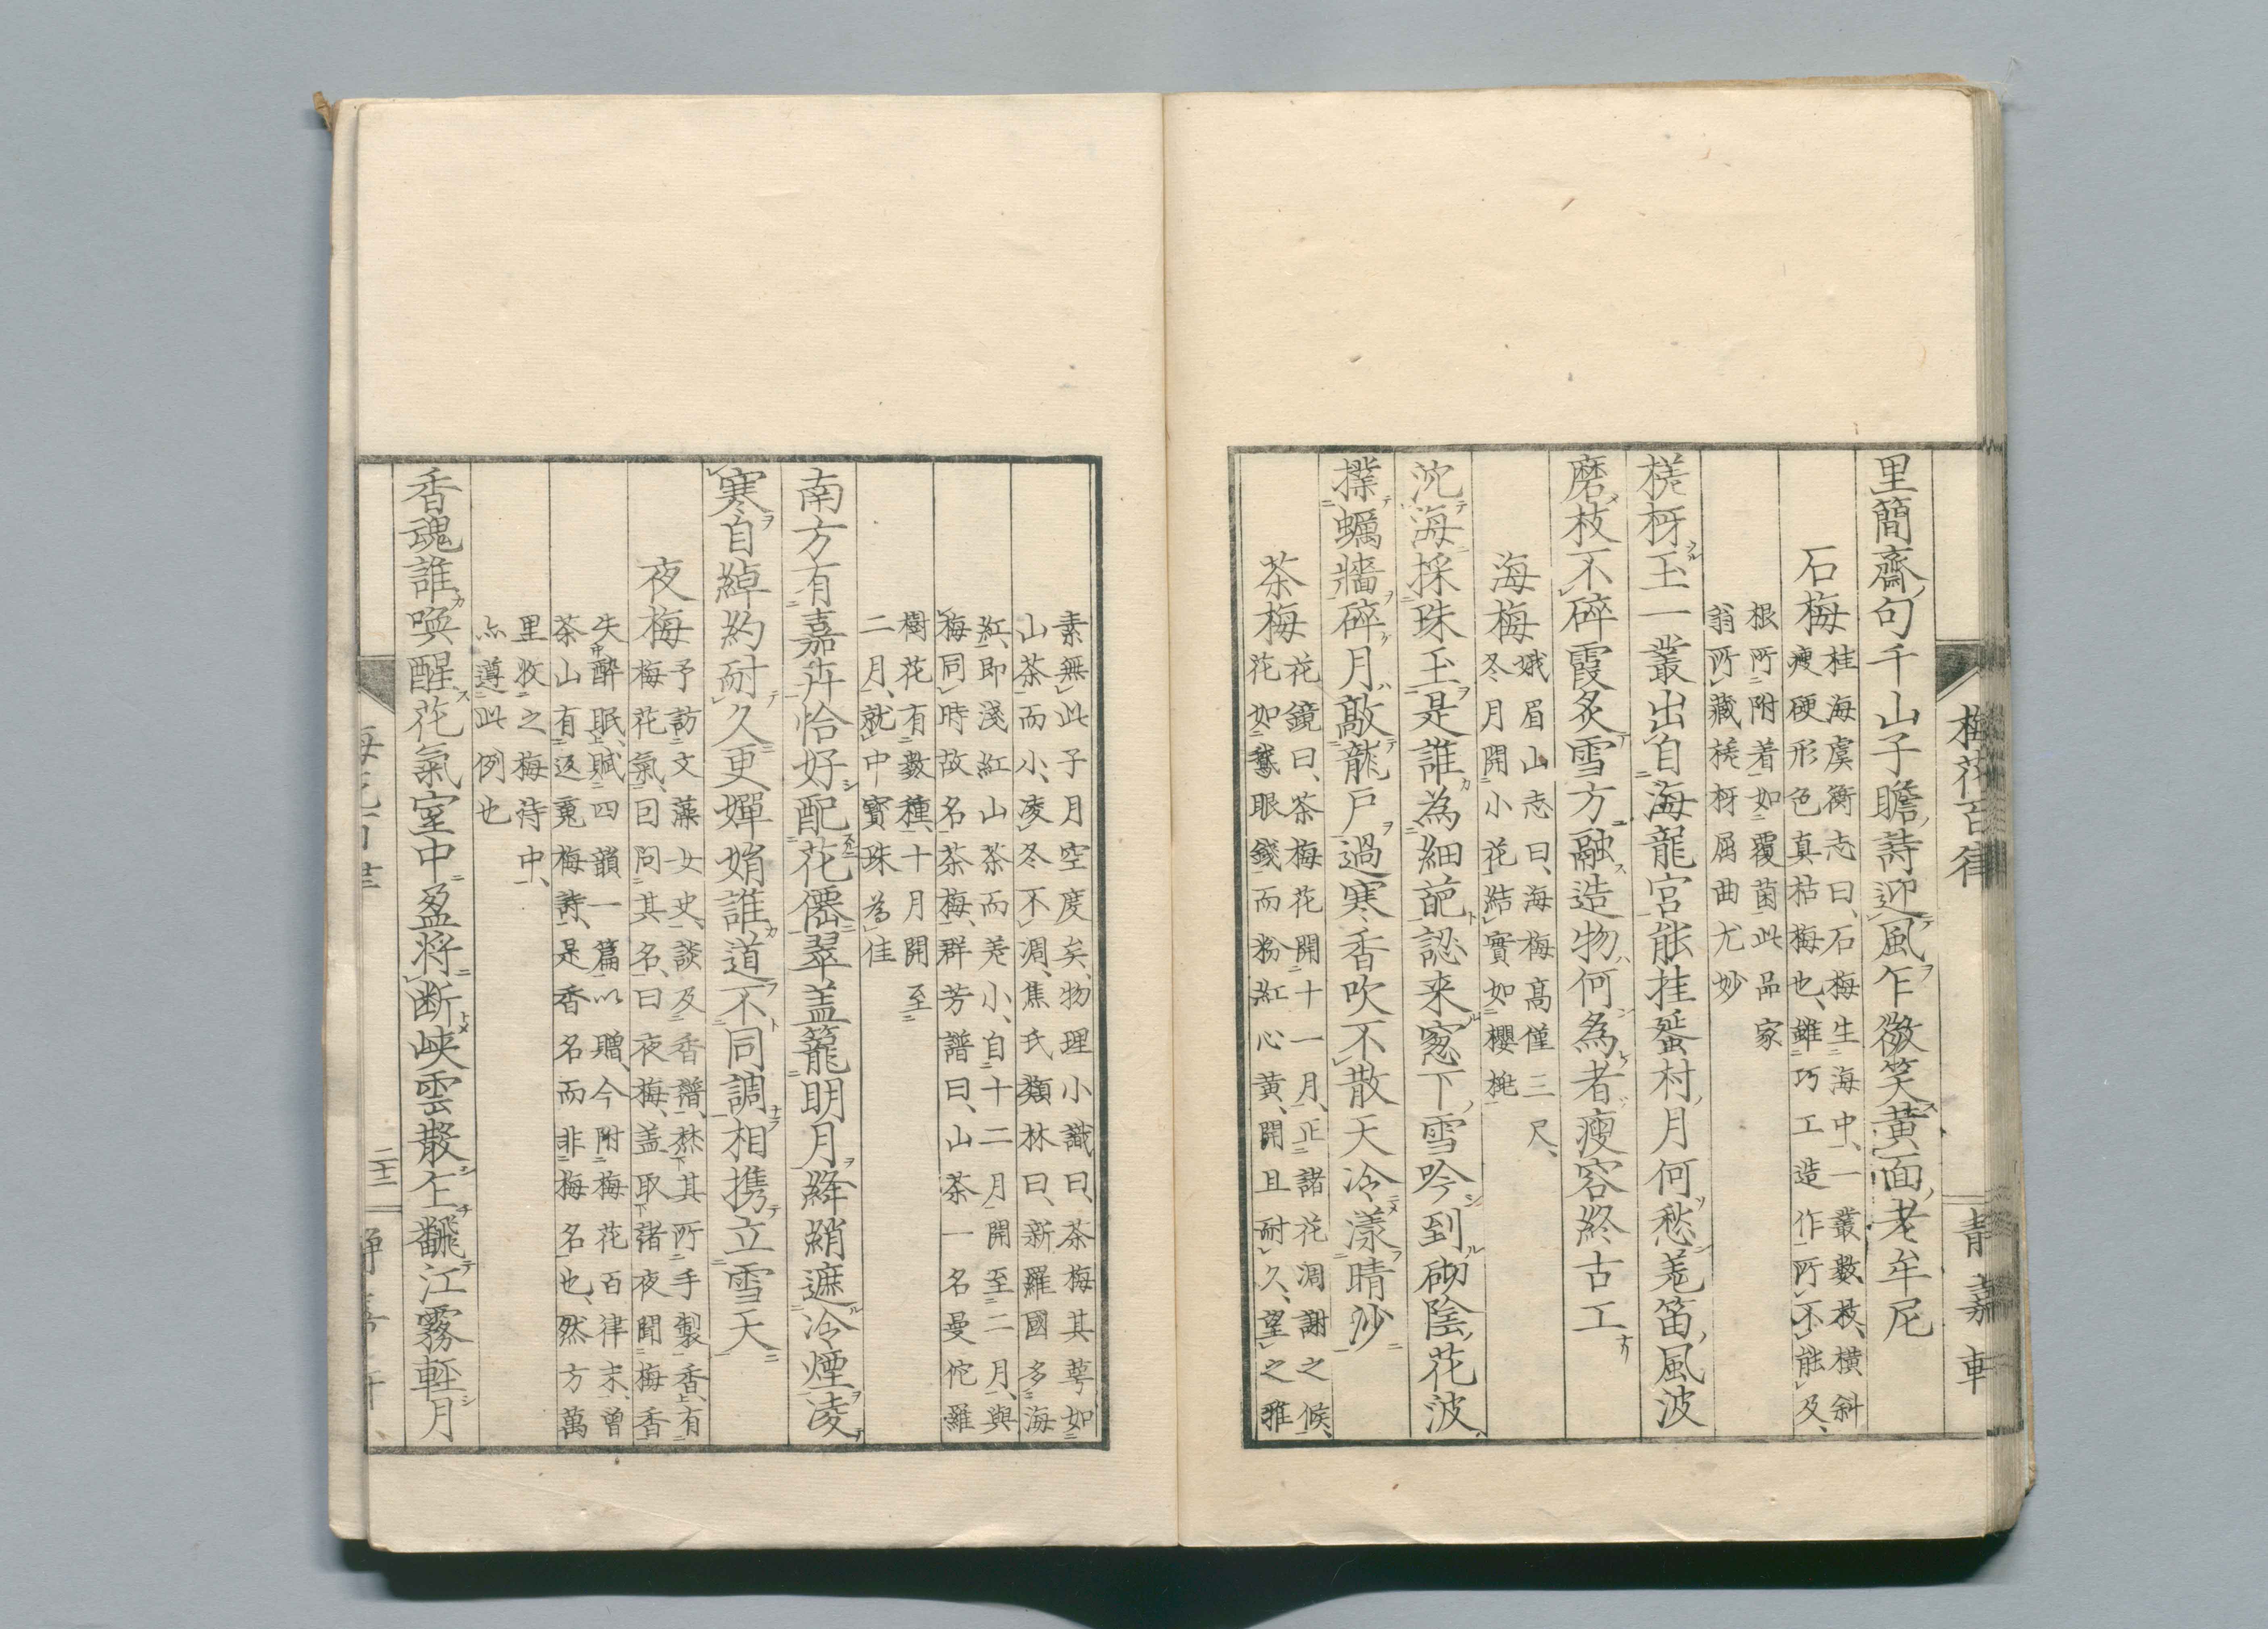 梅花百律
青嘉軒
里簡齋句千山子瞻詩迎風乍微笑黃面老牟尼
石梅
桂海虞衡志曰、石梅生海中、一叢數枝、橫斜
瘦硬形色真枯梅也、雖巧工造作所不能及、
根所附着如覆菌此品家
翁所藏槎枒屈曲尤妙
槎枒玉一叢出自海龍宮能挂蜑村月何愁羗笛風波
磨枝不碎霞炙雪方融造物何為者瘦容終古工
海梅
娥眉山志曰、海梅高僅三尺、
冬月開小花結實如櫻桃
沈海採珠玉是誰為細葩認来窓下雪吟到砌陰花波
擽蠣牆碎月敲龍戸過寒香吹不散天冷漾晴沙
茶梅
花鏡曰、茶梅花開十一月、正諸花凋謝之候、
花如鵞眼錢而粉紅心黄、開且耐久、望之雅
素無此子月空度矣、物理小識曰、茶梅其蕚如
山茶而小、凌冬不凋、焦氏類林曰、新羅國多海
紅、即淺紅山茶而差小、自十二月開至二月、與
梅同時故名茶梅、群芳譜曰、山茶一名曼佗羅
樹花有數種、十月開至
二月、就中寶珠為佳
南方有嘉卉恰好配花僊翠盖籠明月絳綃遮冷煙凌
寒自綽約耐久更嬋娟誰道不同調相携立雪天
夜梅
予訪文藻女史、談及香譜、焚其所手製香、有
梅花氣、回問其名、曰夜梅、盖取諸夜聞梅香
失酔眠、賦四韻一篇以贈、今附梅花百律末、曾
茶山有返䰟梅詩、是香名而非梅名也、然方萬
里收之梅待中、
亦遵此例也
香魂誰喚醒花氣室中盈将断峡雲散乍飜江霧軽月
二十三